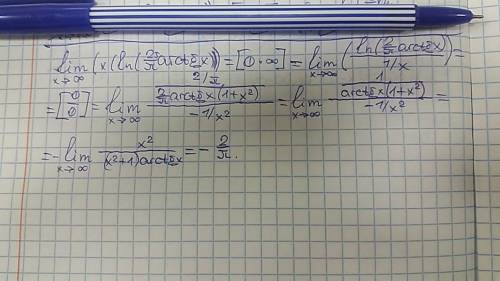 lim x→∞ (x(ln(2/π arctg x)) = [0·∞] = lim x→∞ (ln(2/π arctg x) / 1/x) =
= [0/0] = lim x→∞ (2/π / (2/π arctg x (1+x²))) / (-1/x²) = lim x→∞ (1 / (arctg x (1+x²))) / (-1/x²) =
= - lim x→∞ x² / ((x²+1) arctg x) = - 2/π.